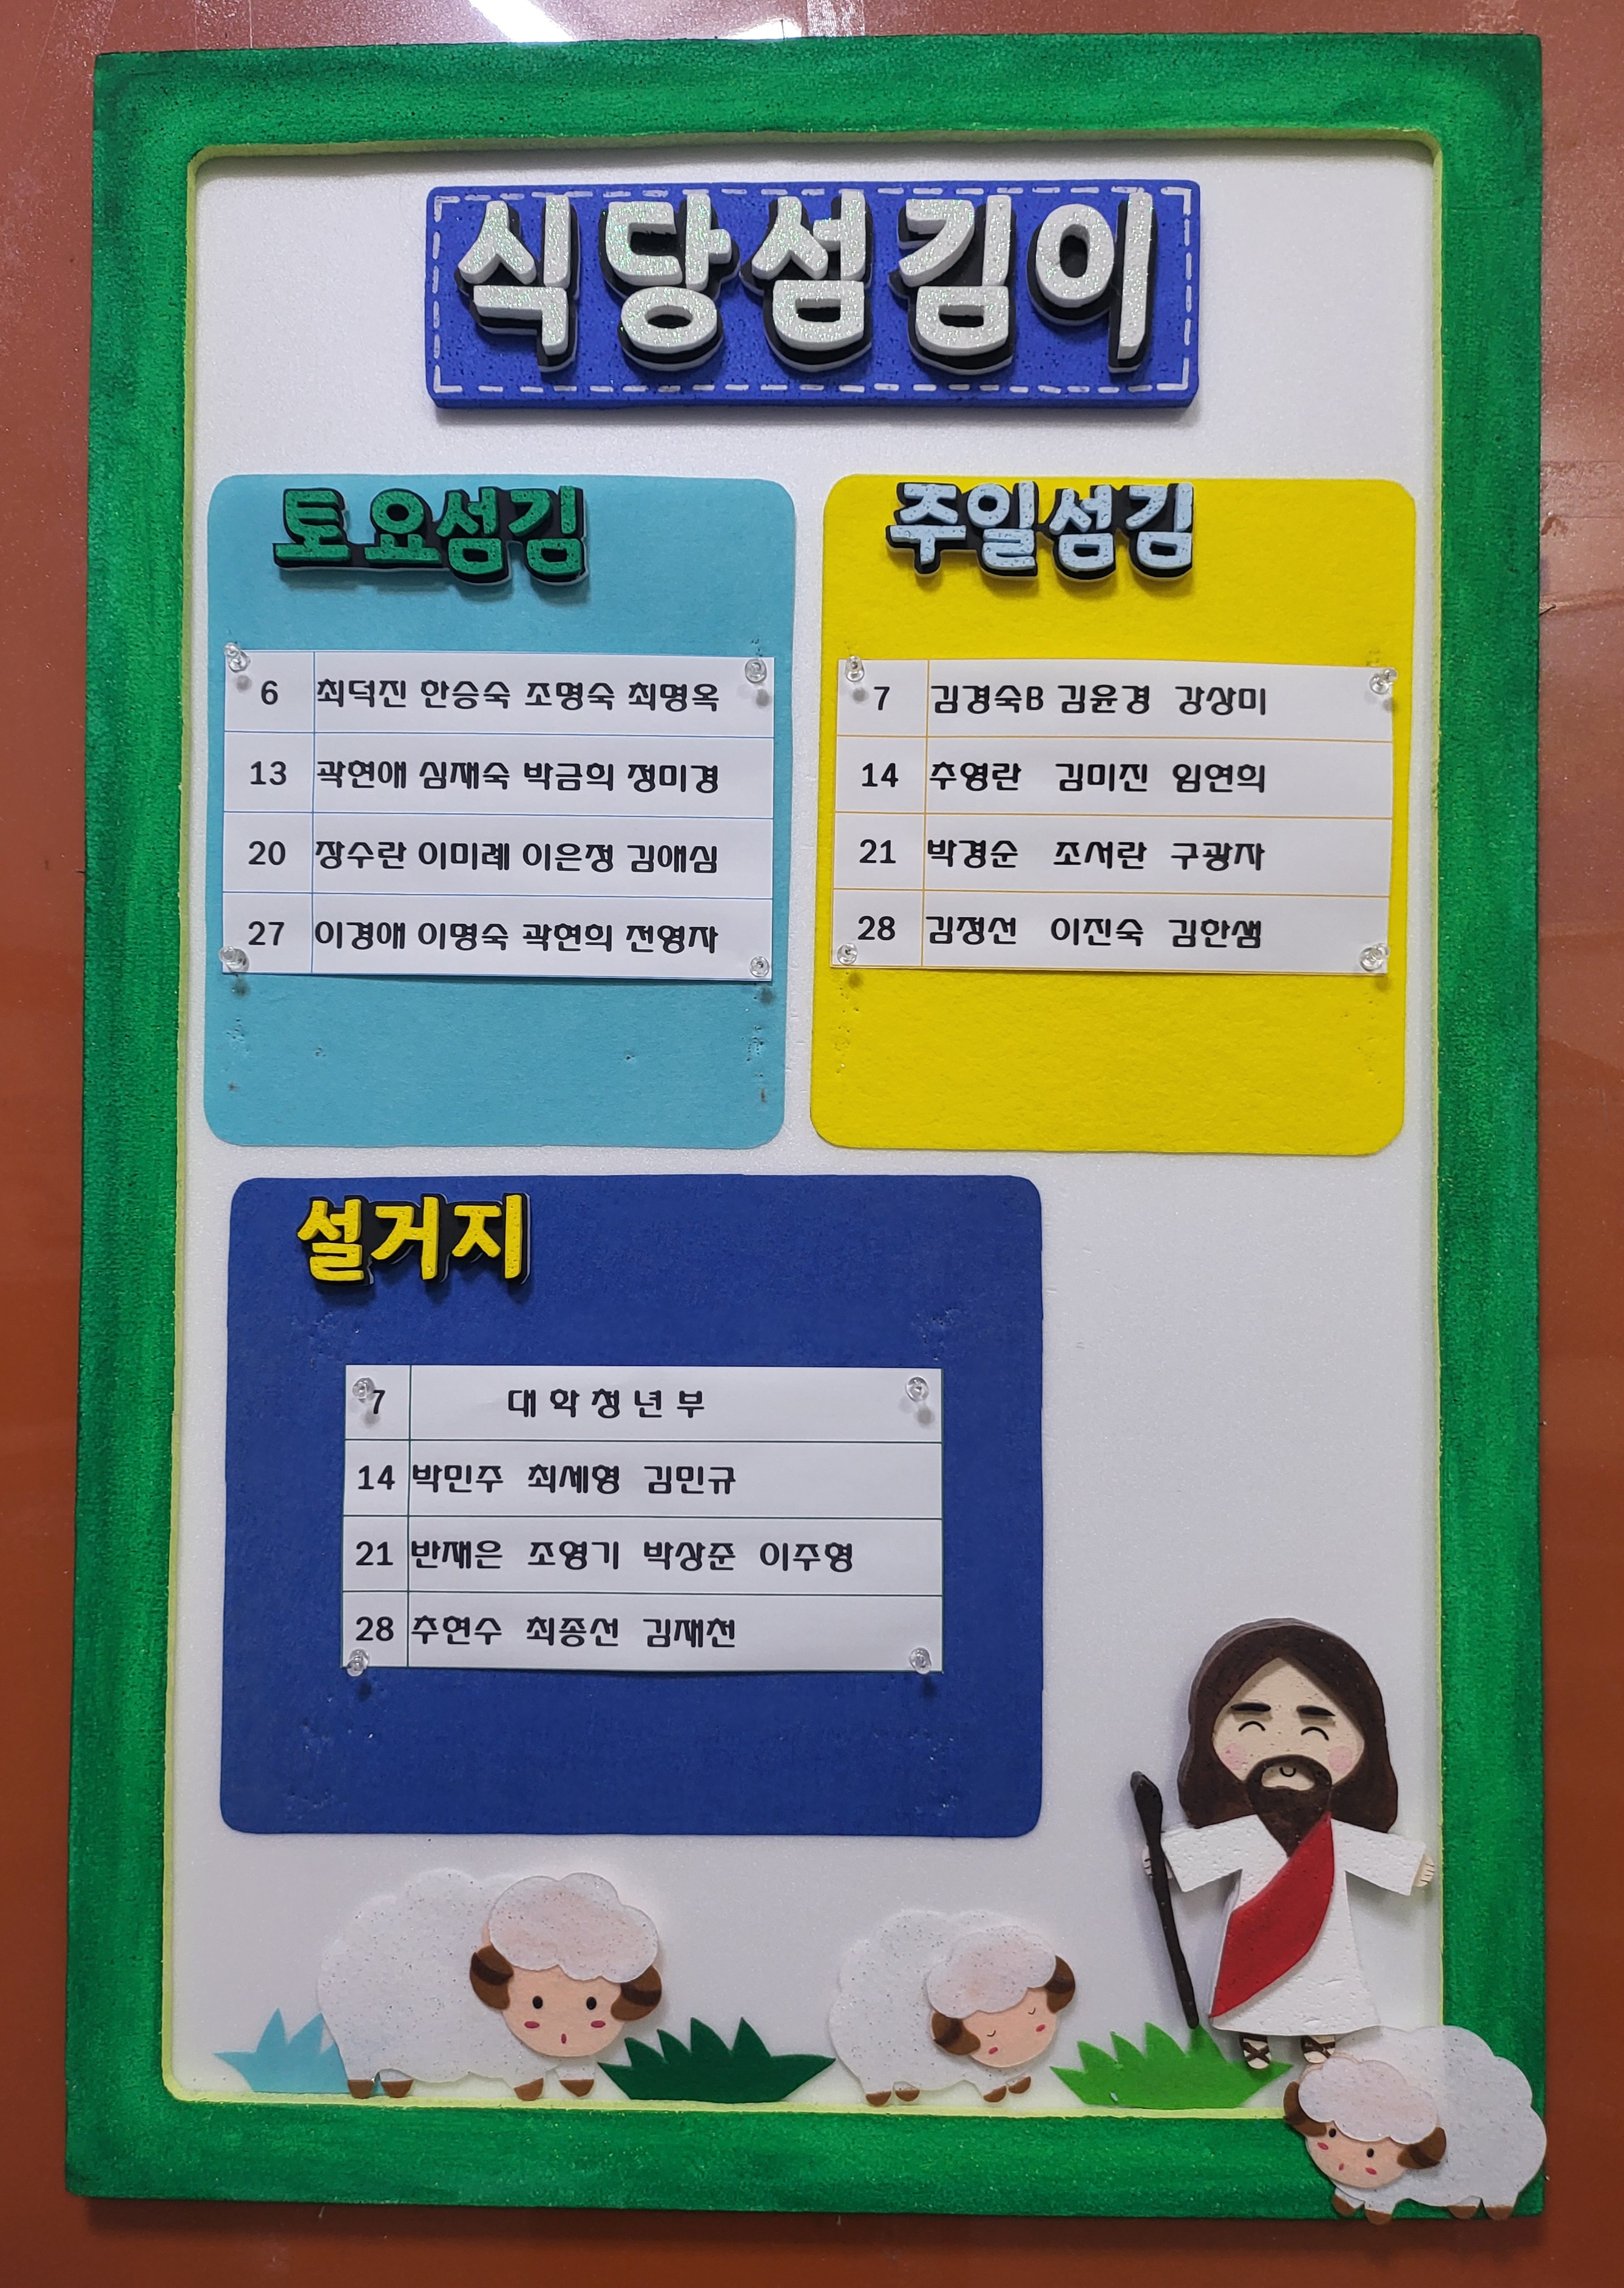 식당섬김이
토요섬김
6 최덕진 한승숙 조명숙 최명옥
13 곽현애 심재숙 박금희 정미경
20 장수란 이미례 이은정 김애심
27 이경애 이명숙 곽현희 전영자
주일섬김
7 김경숙B 김윤경 강상미
14 추영란 김미진 임연희
21 박경순 조서란 구광자
28 김정선 이진숙 김한샘
설거지
7 대 학 청 년 부
14 박민주 최세형 김민규
21 반재은 조영기 박상준 이주형
28 추현수 최종선 김재천